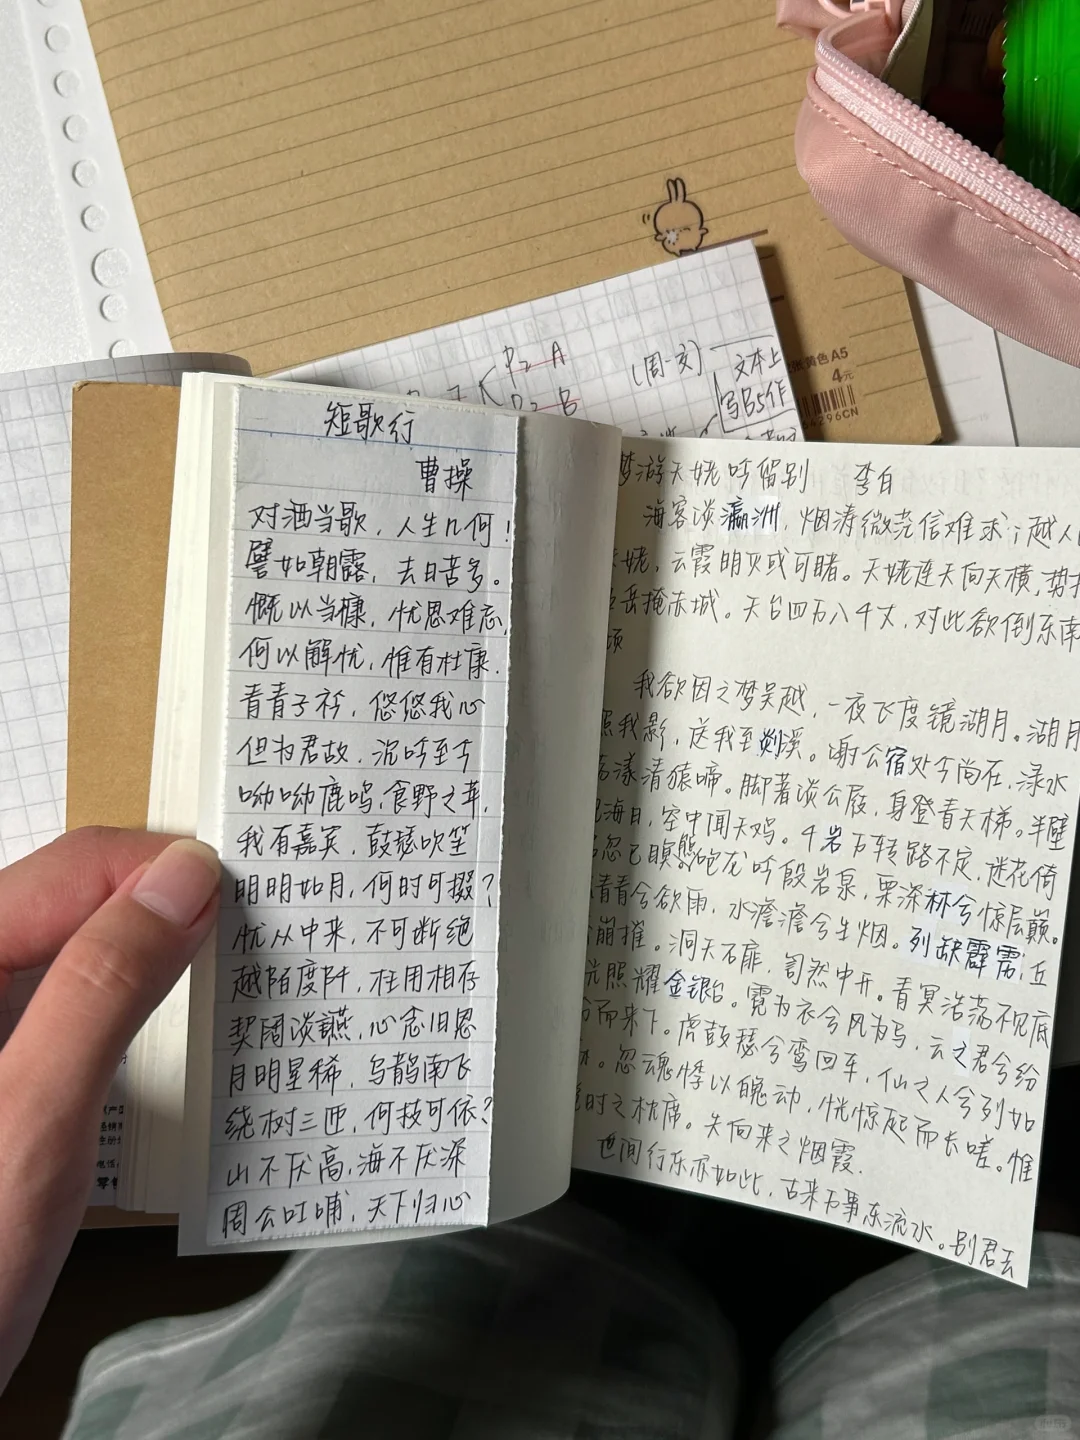 短歌行
曹操
对酒当歌，人生几何！
譬如朝露，去日苦多。
慨以当慷，忧思难忘，
何以解忧，惟有杜康．
青青子衿，悠悠我心
但为君故，沉吟至今
呦呦鹿鸣，食野之苹，
我有嘉宾，鼓瑟吹笙
明明如月，何时可掇？
忧从中来，不可断绝
越陌度阡，枉用相存
契阔谈讌，心念旧恩
月明星稀，乌鹊南飞
绕树三匝，何枝可依？
山不厌高，海不厌深
周公吐哺，天下归心
梦游天姥吟留别 李白
海客谈瀛洲，烟涛微茫信难求；越人
天姥，云霞明灭或可睹。天姥连天向天横，势
岳掩赤城。天台四万八千丈，对此欲倒东南
倾
我欲因之梦吴越，一夜飞度镜湖月。湖月
照我影，送我至剡溪。谢公宿处今尚在，渌水
荡漾清猿啼。脚著谈公屐，身登青天梯。半壁
海日，空中闻天鸡。千岩万转路不定，迷花倚
石忽已暝。熊咆龙吟殷岩泉，栗深林兮惊层巅。
青青兮欲雨，水澹澹兮生烟。列缺霹雳，丘
崩摧。洞天石扉，訇然中开。青冥浩荡不见底
照耀金银台。霓为衣兮风为马，云之君兮纷
纷而来下。虎鼓瑟兮鸾回车，仙之人兮列如
麻。忽魂悸以魄动，恍惊起而长嗟。惟
觉时之枕席。失向来之烟霞．
世间行乐亦如此，古来万事东流水。别君去
P2 A
B
(周一交)
文本上
写B5作
黄色A5
4元